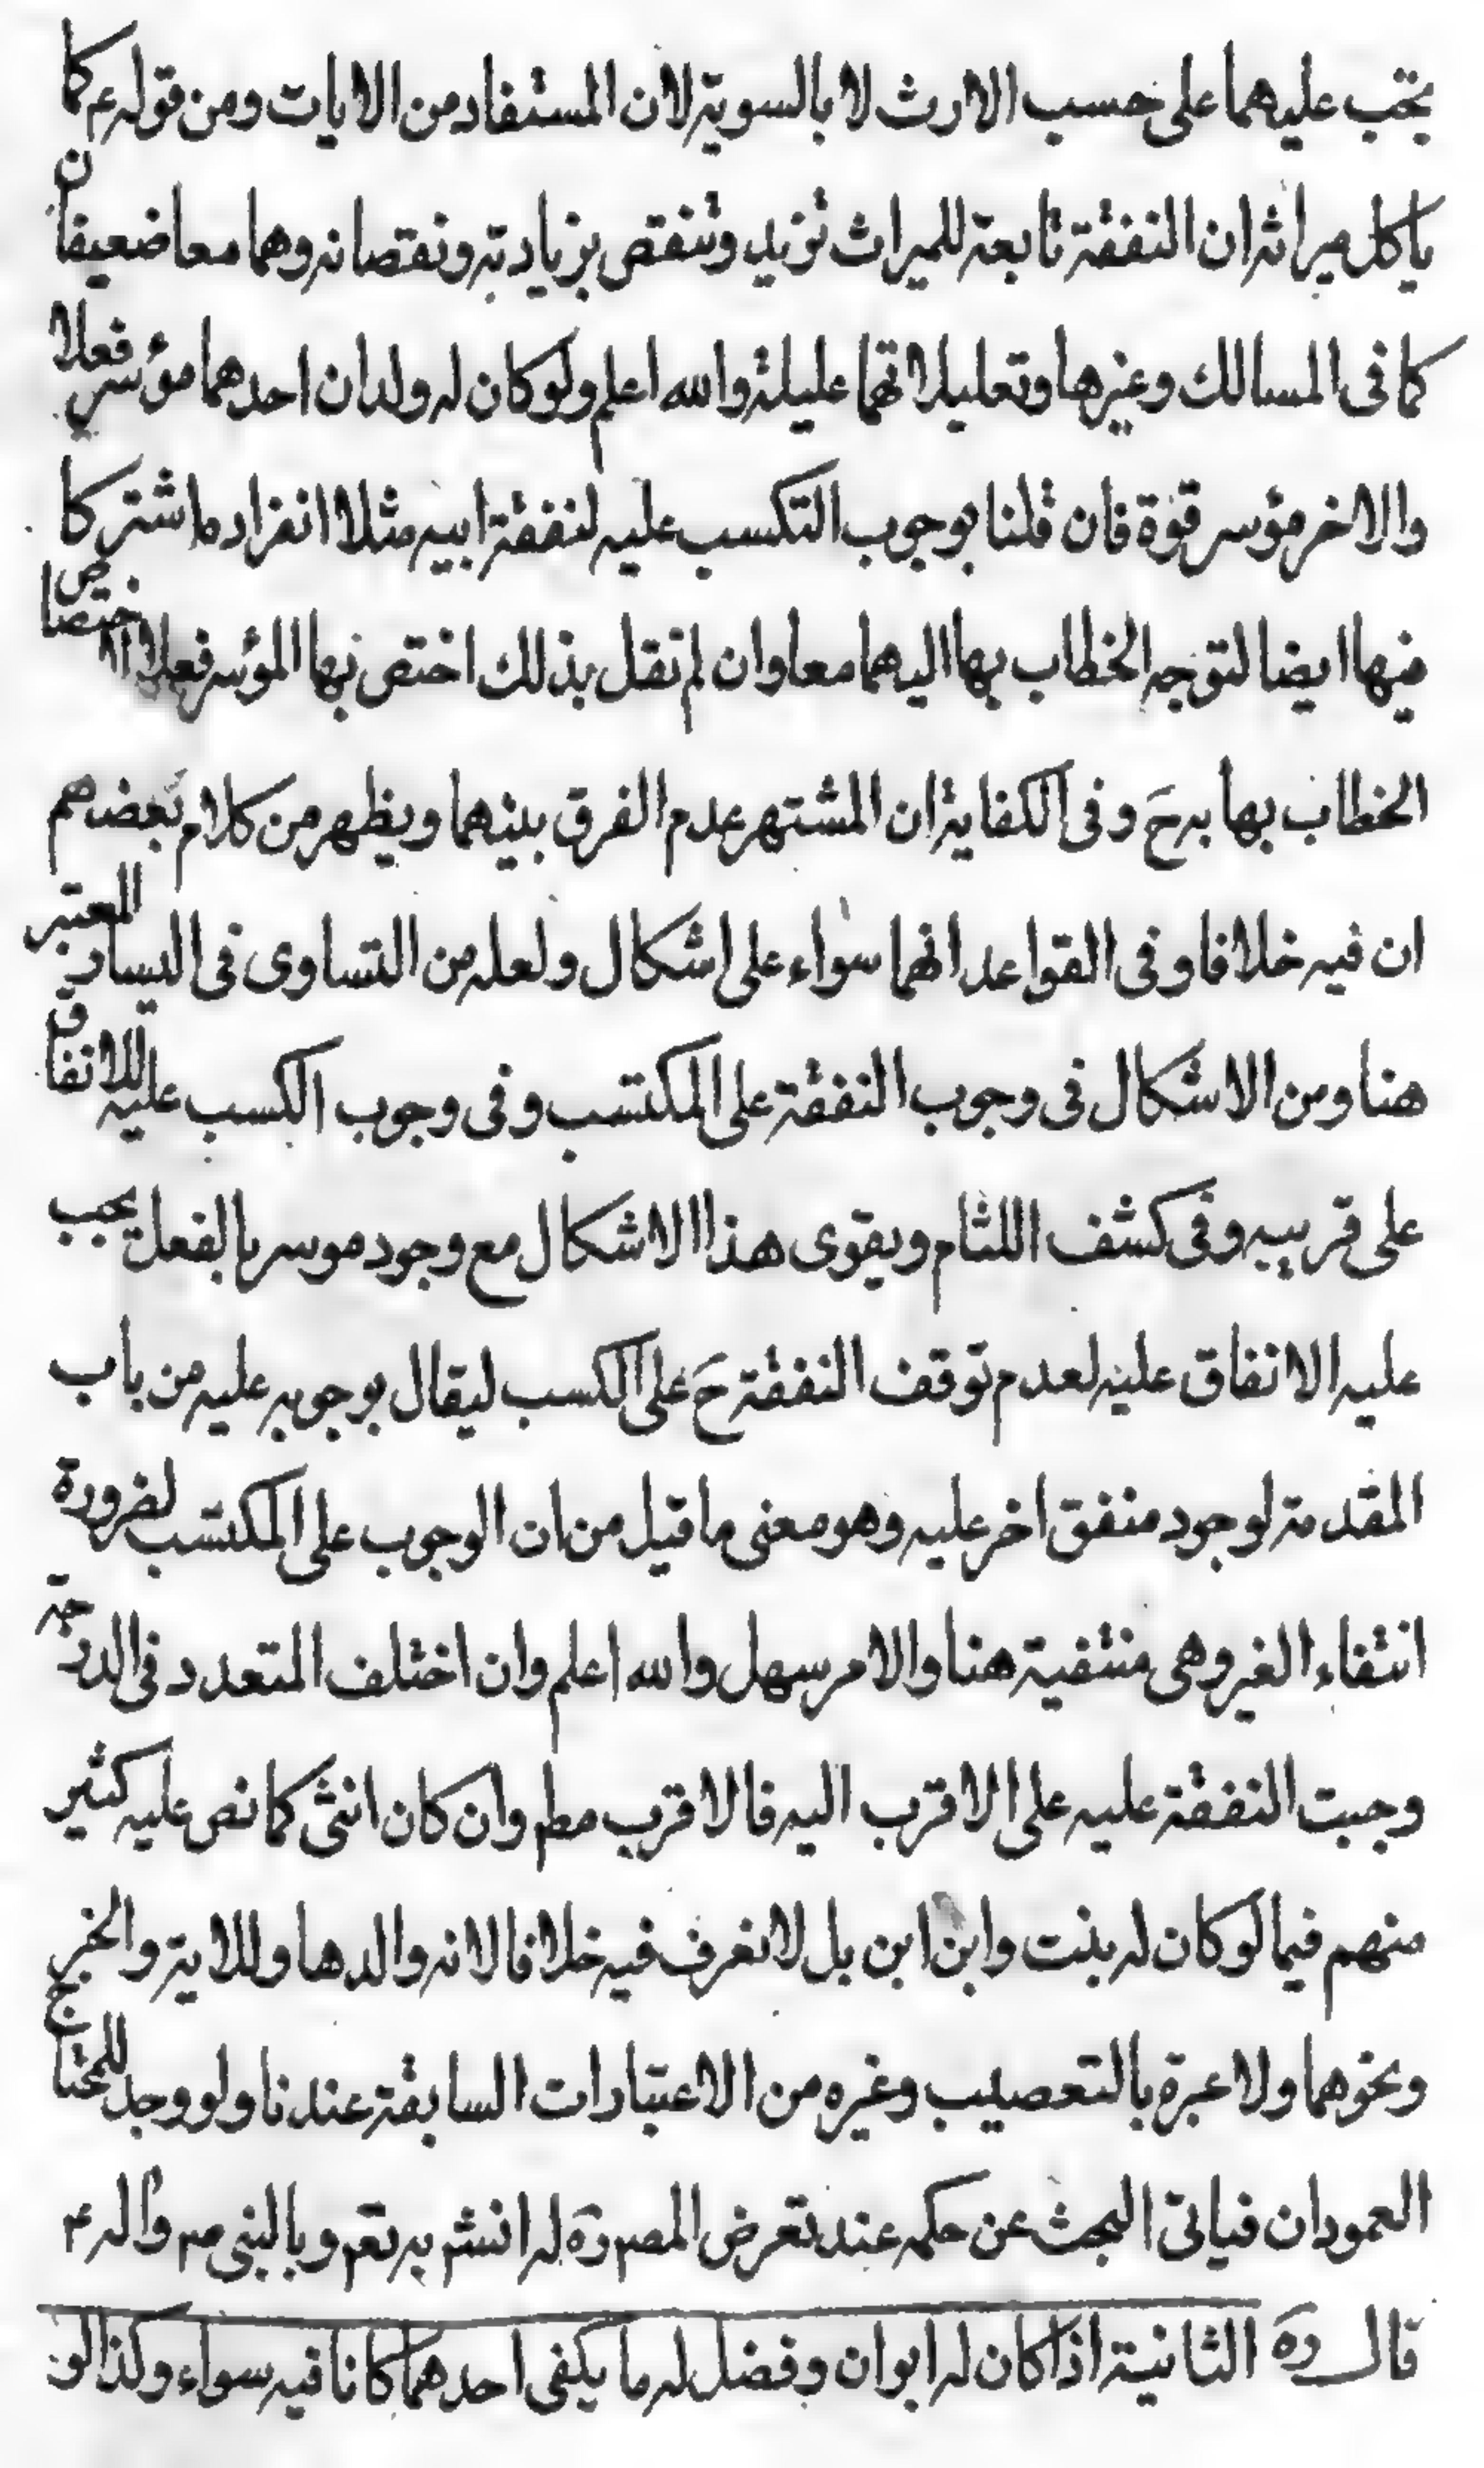 يجب عليهما على حسب الارث لا بالسوية لان المستفاد من الايات ومن قوله ع كما
ياكل ميراثه ان النفقة تابعة للميراث تزيد وتنقص بزيادته ونقصانه وهما معا ضعيفان
كما فى المسالك وغيرها وتعليلاتهما عليلة والله اعلم ولو كان له ولدان احدهما مؤسر فعلا
والاخر مؤسر قوة فان قلنا بوجوب التكسب عليه لنفقة ابيه مثلا انفراد ما اشتركا
فيها ايضا لتوجه الخطاب بها اليهما معا وان لم نقل بذلك اختص بها المؤسر فعلا لاختصاص
الخطاب بها به ح وفى الكفاية ان المشتهر عدم الفرق بينهما ويظهر من كلام بعضهم
ان فيه خلافا وفى القواعد انهما سواء على اشكال ولعله من التساوى فى اليسار المعتبر
هنا ومن الاشكال فى وجوب النفقة على المكتسب وفى وجوب الكسب عليه للانفاق
على قريبه وفى كشف اللثام ويقوى هذا الاشكال مع وجود موسر بالفعل يجب
عليه الانفاق عليه لعدم توقف النفقة ح على الكسب ليقال بوجوبه عليه من باب
المقدمة لوجود منفق اخر عليه وهو معنى ما قيل من ان الوجوب على المكتسب لضرورة
انتفاء الغير وهى منتفية هنا والامر سهل والله اعلم وان اختلف المتعدد فى الدرجة
وجبت النفقة عليه على الاقرب اليه فالاقرب مطم وان كان انثى كما نص عليه كثير
منهم فيما لو كان له بنت وابن ابن بل لا نعرف فيه خلافا لانه والدها وللاية والخبر
ونحوهما ولا عبرة بالتعصيب وغيره من الاعتبارات السابقة عندنا ولو وجد للمحتاج
العمودان فياتى البحث عن حكمه عند تعرض المصم ره له انشم به تعم وبالنبى صم واله ع
قال ره الثانية اذا كان له ابوان وفضل له ما يكفى احدهما كانا فيه سواء وكذا لو